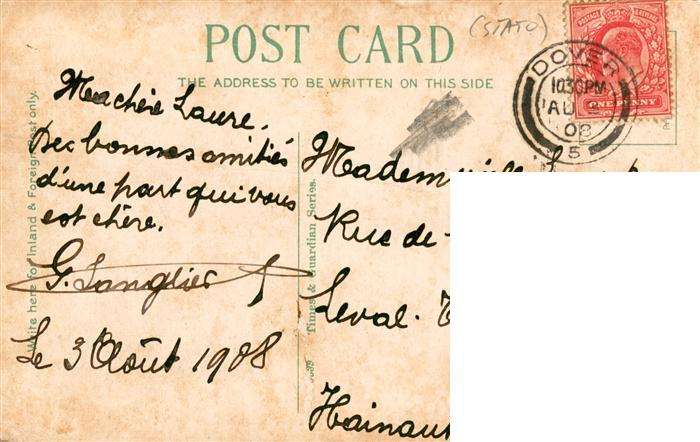 (STATO)
POST CARD
THE ADDRESS TO BE WRITTEN ON THIS SIDE
DOVER
10.30PM
AU
08
5
POSTAGE REVENUE
ONE PENNY
White here for Inland & Foreign Post only.
Ma chère Laure,
Des bonnes amitiés
d'une part qui vous
est chère.
G. Sanglier
Le 3 Août 1908
Times & Guardian Series.
Rue de
Leval.
Hainau